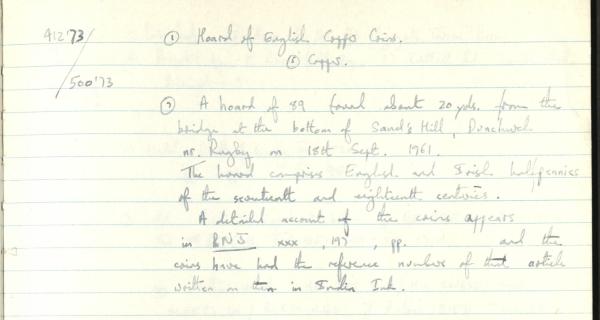 412'73 / 500'73
① Hoard of English Copper Coins.
⑤ Copper.
⑦ A hoard of 89 found about 20 yds. from the
bridge at the bottom of Sand's Hill, Dunchurch
nr. Rugby on 18th Sept. 1961.
The hoard comprises English and Irish halfpennies
of the seventeenth and eighteenth centuries.
A detailed account of the coins appears
in BNJ xxx , 197 , pp. and the
coins have had the reference number of that article
written on them in Indian Ink.